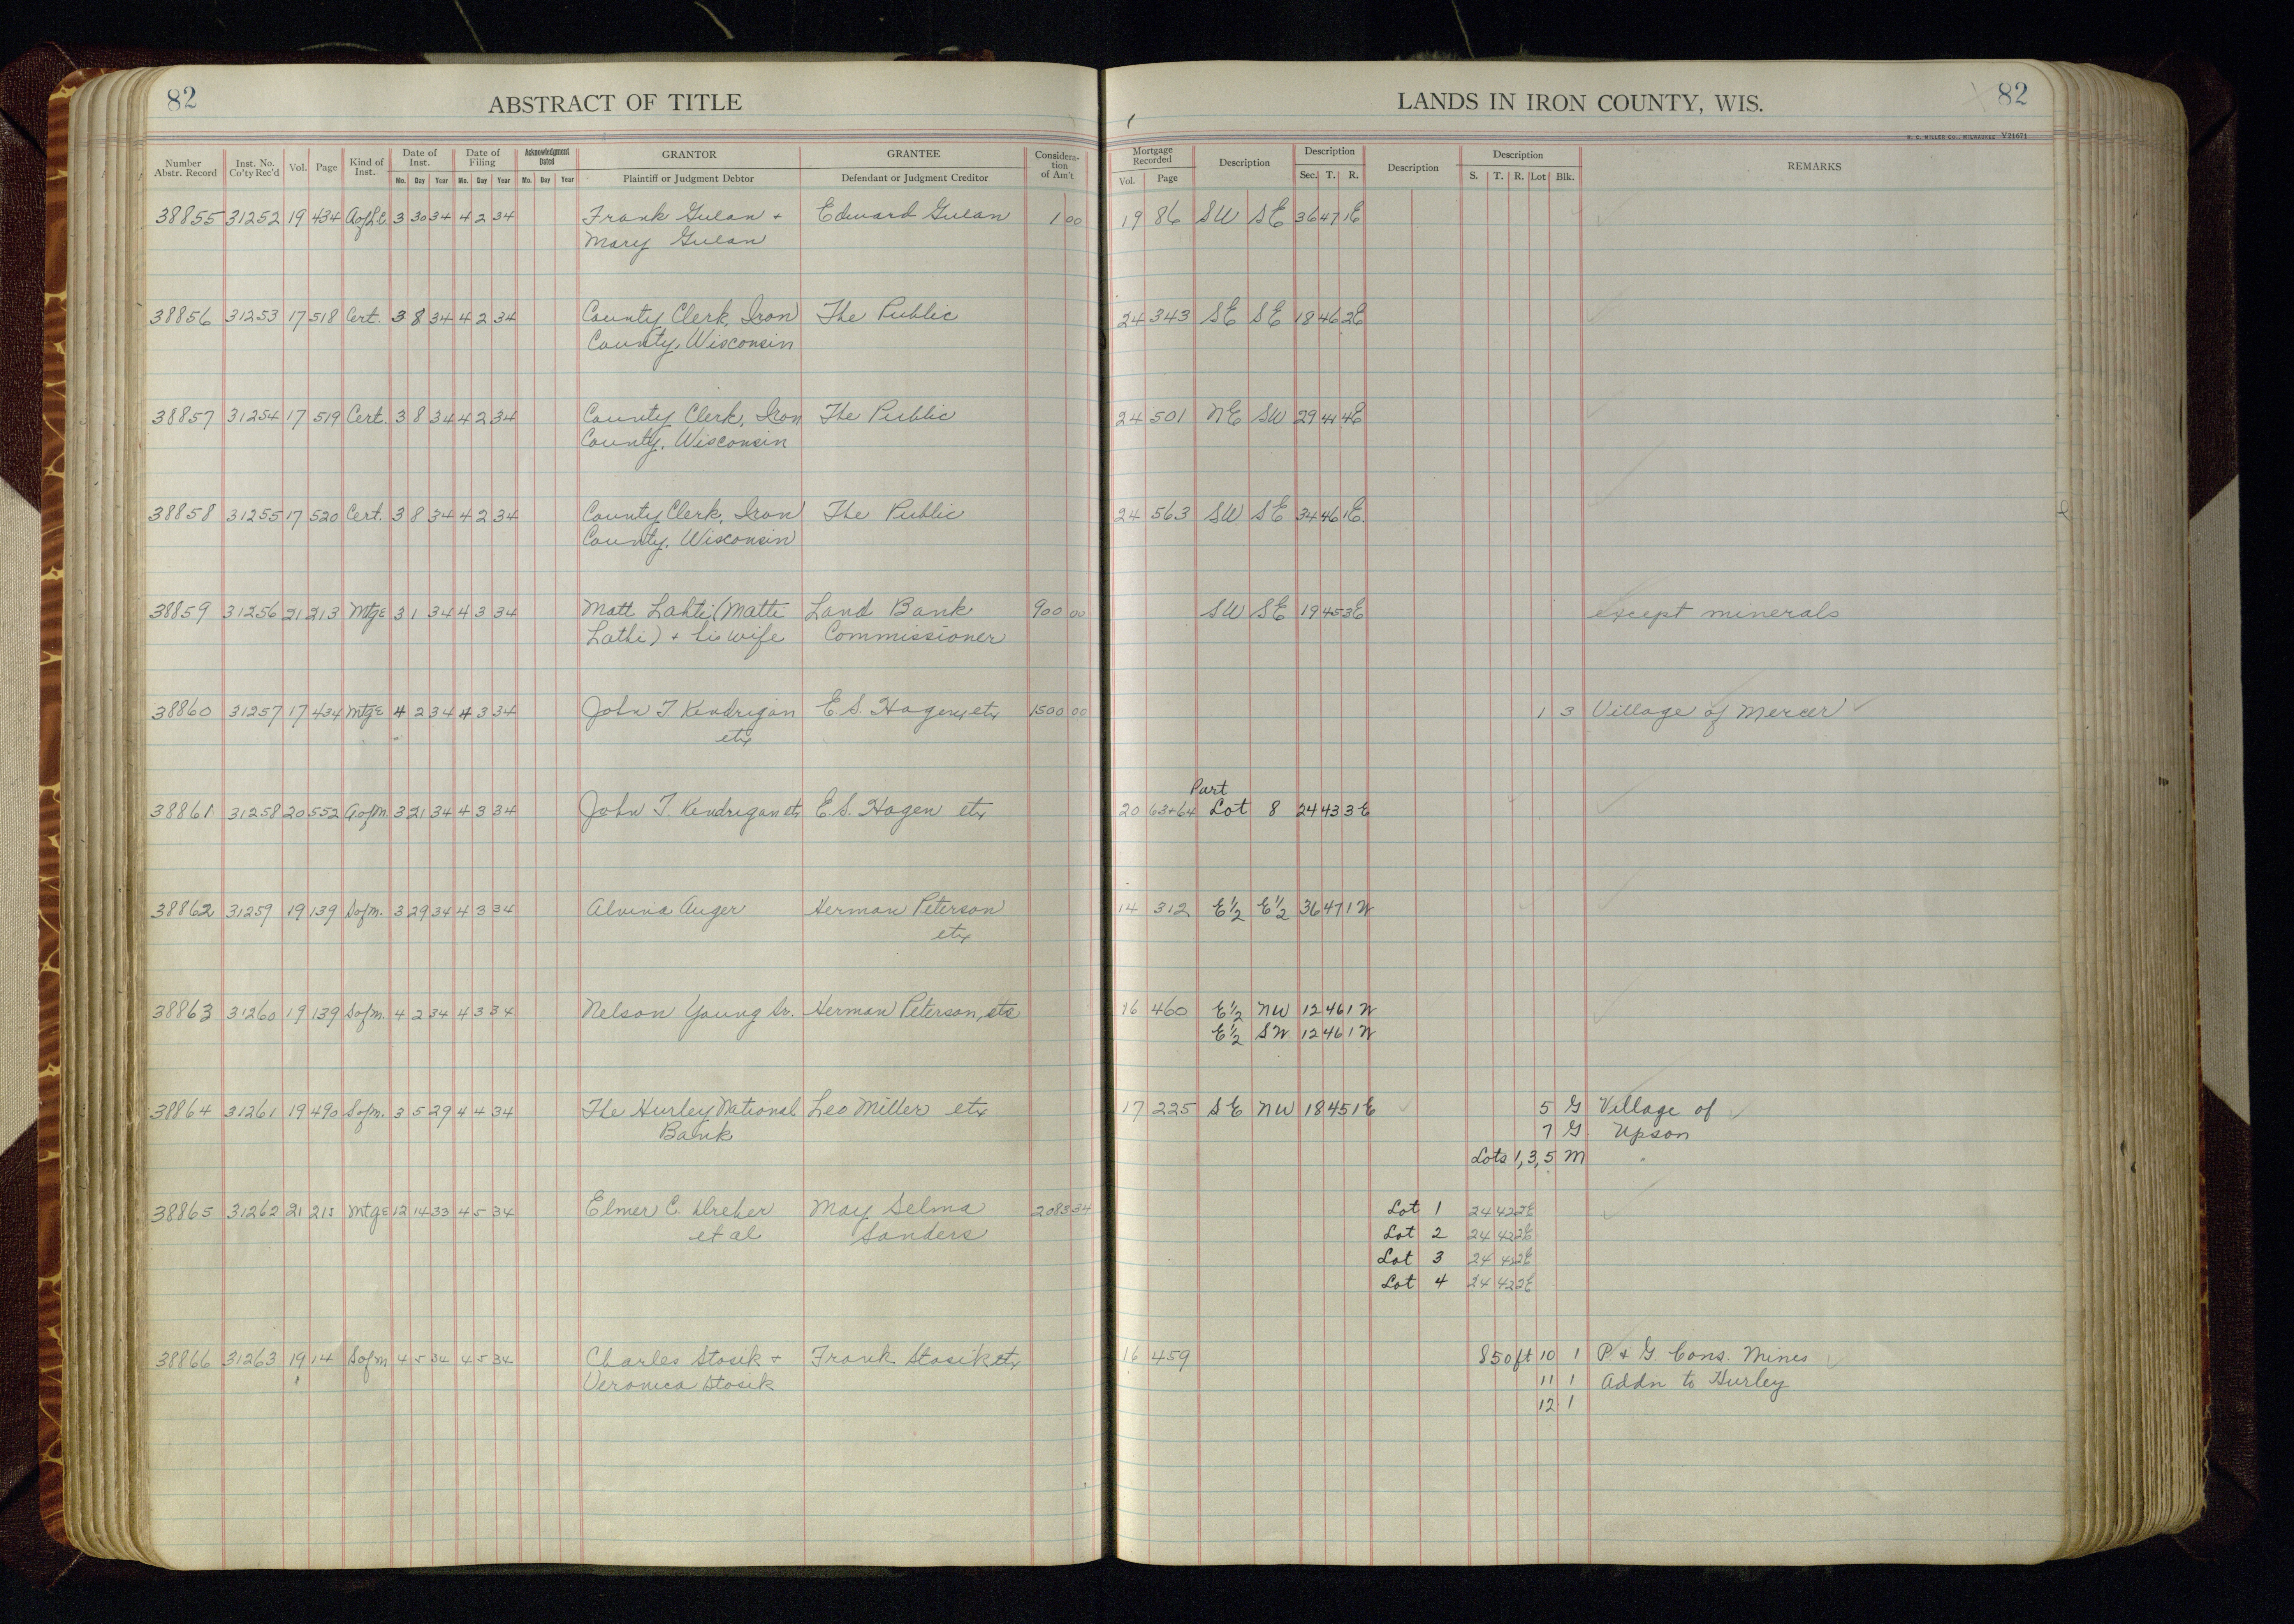 82 ABSTRACT OF TITLE
LANDS IN IRON COUNTY, WIS. 82
H. C. MILLER CO., MILWAUKEE V21671
Number Abstr. Record Inst. No. Co'ty Rec'd Vol. Page Kind of Inst. Date of Inst. Mo. Day Year Date of Filing Mo. Day Year Acknowledgment Dated Mo. Day Year GRANTOR Plaintiff or Judgment Debtor GRANTEE Defendant or Judgment Creditor Considera-tion of Am't
Mortgage Recorded Vol. Page Description Description Sec. T. R. Description Description S. T. R. Lot Blk. REMARKS
38855 31252 19 434 AofLC. 3 30 34 4 2 34 Frank Gulan + Edward Gulan 1 00 19 86 SW SE 36 47 1E
Mary Gulan
38856 31253 17 518 Cert. 3 8 34 4 2 34 County Clerk, Iron The Public 24 343 SE SE 18 46 2E
County, Wisconsin
38857 31254 17 519 Cert. 3 8 34 4 2 34 County Clerk, Iron The Public 24 501 NE SW 29 44 4E
County, Wisconsin
38858 31255 17 520 Cert. 3 8 34 4 2 34 County Clerk, Iron The Public 24 563 SW SE 34 46 1E
County, Wisconsin
38859 31256 21 213 Mtge 3 1 34 4 3 34 Matt Lahti (Matti Land Bank 900 00 SW SE 19 45 3E except minerals
Lathi) + his wife Commissioner
38860 31257 17 434 Mtge 4 2 34 4 3 34 John T Kendrigan E. S. Hagen, etx 1500 00 1 3 Village of Mercer
etx
Part
38861 31258 20 552 AofM. 3 21 34 4 3 34 John T. Kendrigan etx E. S. Hagen etx 20 63+64 Lot 8 24 43 3E
38862 31259 19 139 Sofm. 3 29 34 4 3 34 Alvina Auger Herman Peterson 14 312 E½ E½ 36 47 1W
etx
38863 31260 19 139 Sofm. 4 2 34 4 3 34 Nelson Young Sr. Herman Peterson, etx 16 460 E½ NW 12 46 1W
E½ SW 12 46 1W
38864 31261 19 490 Sofm. 3 5 29 4 4 34 The Hurley National Leo Miller etx 17 225 SE NW 18 45 1E 5 G Village of
Bank 7 G Upson
Lots 1, 3, 5 M "
38865 31262 21 215 Mtge 12 14 33 4 5 34 Elmer C. Dreher May Selma 2083 34 Lot 1 24 42 2E
et al Sanders Lot 2 24 42 2E
Lot 3 24 42 2E
Lot 4 24 42 2E
38866 31263 19 14 Sofm 4 5 34 4 5 34 Charles Stosik + Frank Stosik etx 16 459 S50ft 10 1 P. & G. Cons. Mines
Veronica Stosik 11 1 Addn to Hurley
12 1